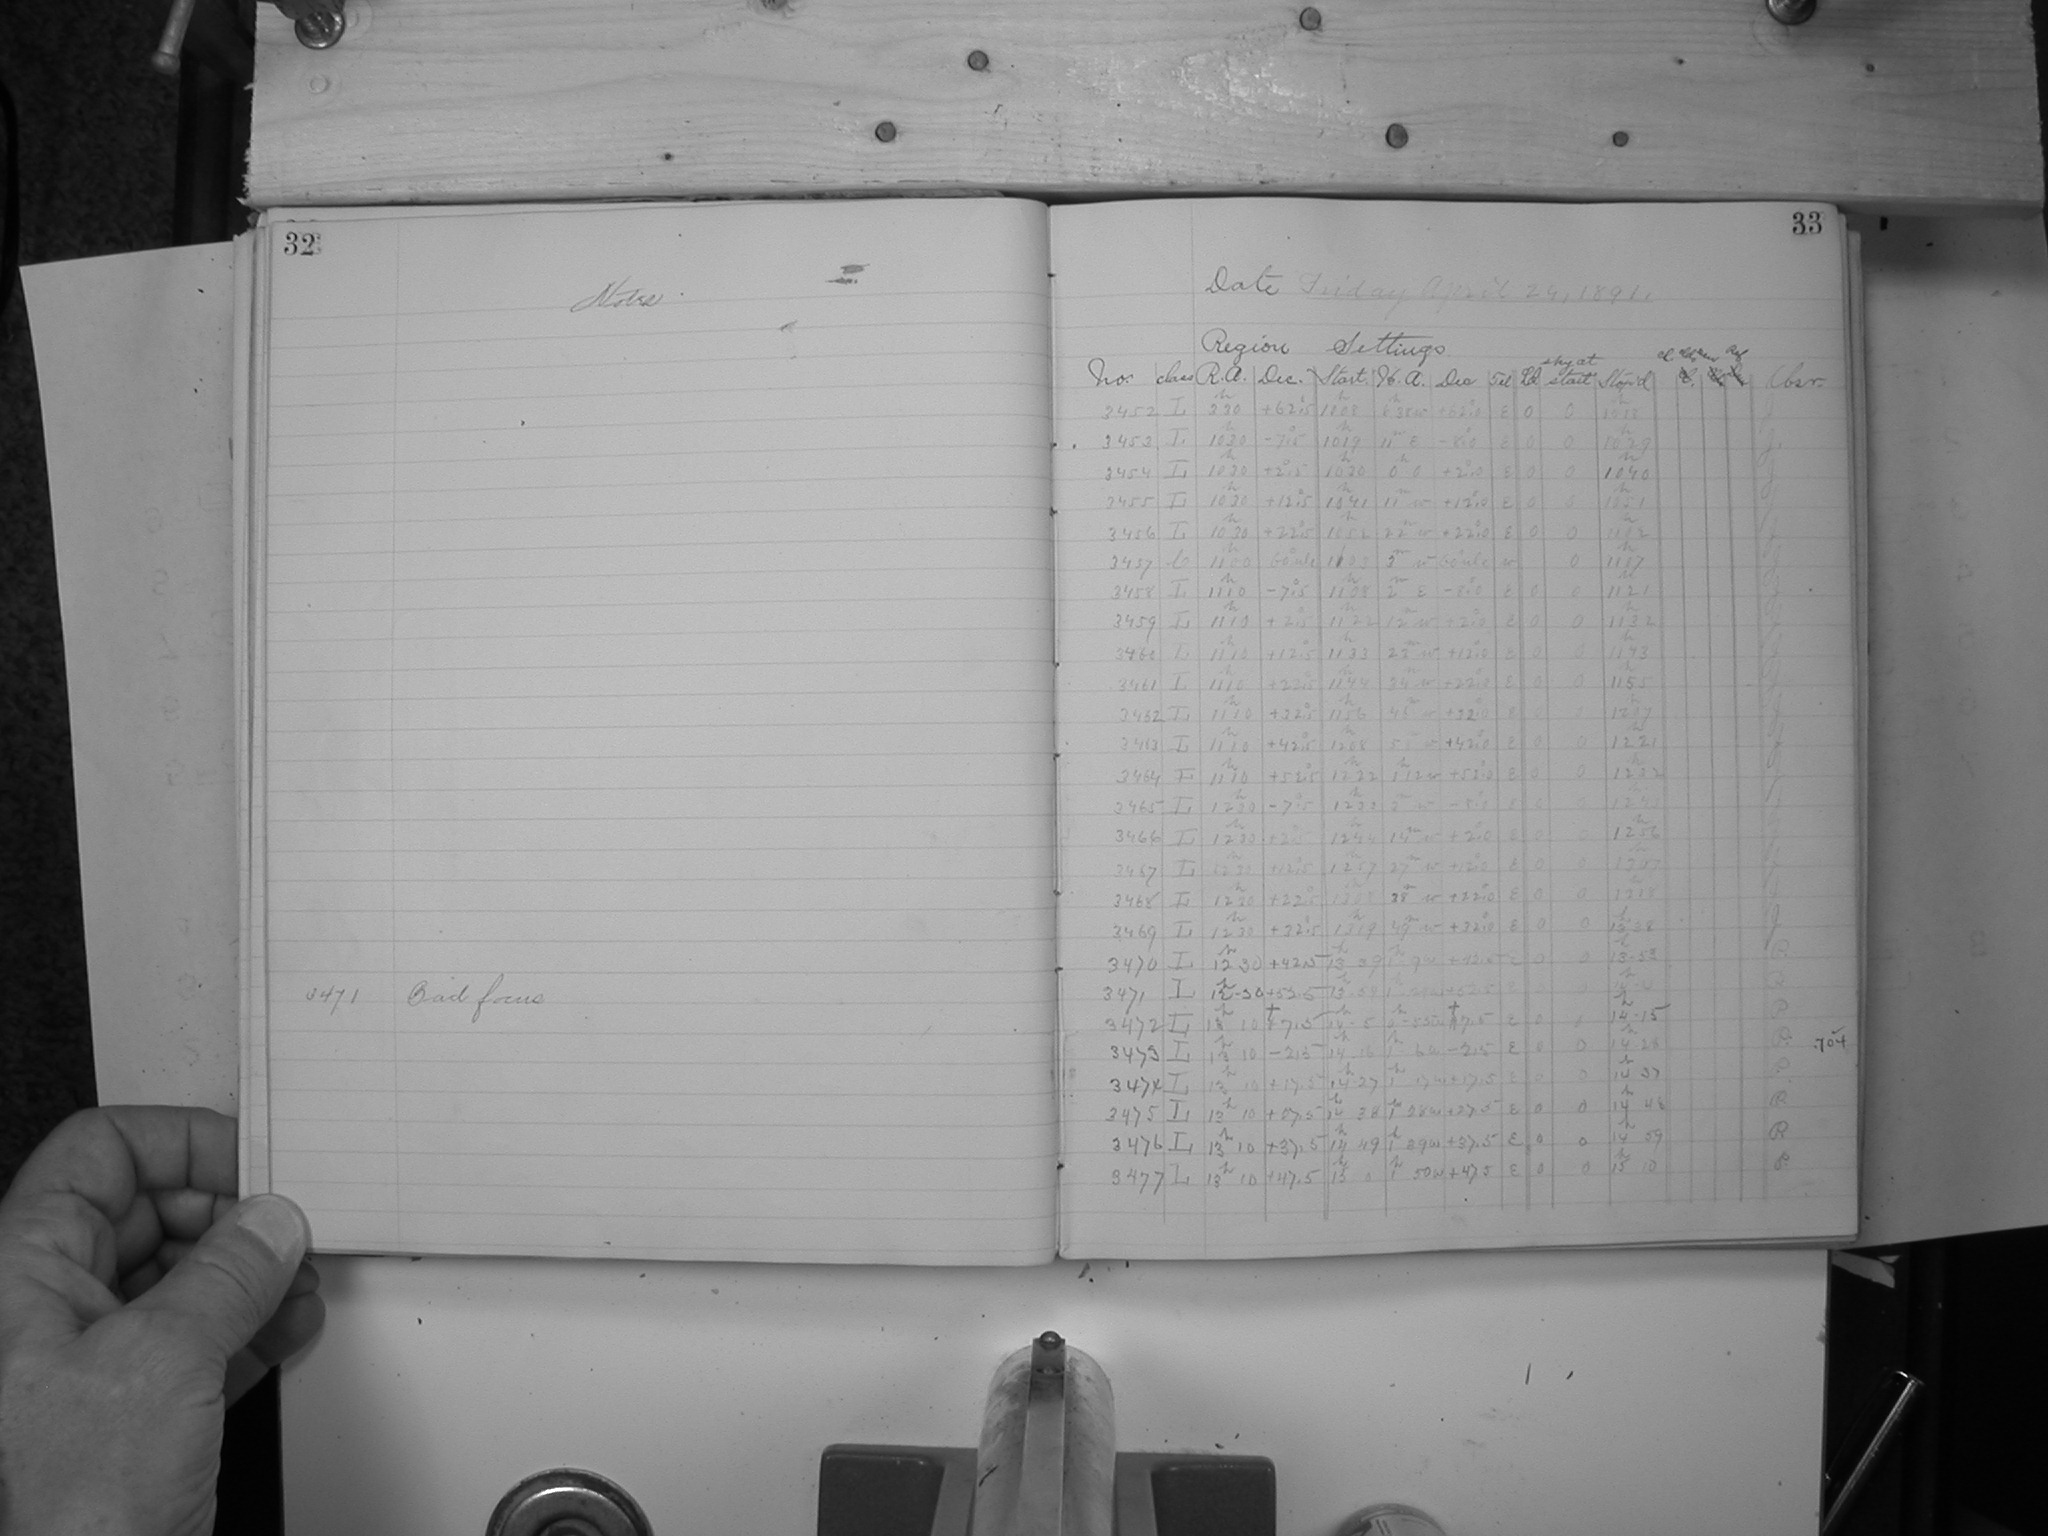 32
Notes
3471 Bad focus
33
Date Friday April 24, 1891.
Region Settings
No. class R.A. Dec. Start. H.A. Dec sky at start Stop'd Obsr.
3452 L 9 30 +62.5 10 08 +62.0 E 0 0 10 18
3453 L 10 30 -7.5 10 19 11m E -8.0 E 0 0 10 29 J.
3454 L 10h30 +2.5 10h30 0h0 +2.0 E 0 0 10h40 J
3455 L 10h30 +12.5 10h41 11m w +12.0 E 0 0 10h51 J
3456 L 10h30 +22.5 10h52 22m w +22.0 E 0 0 11h02 J
3457 C 11h00 11h03 3m w w 0 11h17 J
3458 L 11h10 -7.5 11h08 2m E -8.0 E 0 0 11h21 J
3459 L 11h10 +2.5 11h22 12m w +2.0 E 0 0 11h32 J
3460 L 11h10 +12.5 11h33 23m w +12.0 E 0 0 11h43 J
3461 L 11h10 +22.5 11h44 34m w +22.0 E 0 0 11h55 J
3462 L 11h10 +32.5 11h56 46m w +32.0 E 0 0 12h07 J
3463 L 11h10 +42.5 12h08 w +42.0 E 0 0 12h21 J
3464 L 11h10 +52.5 12h22 1h12w +52.0 E 0 0 12h32 J
3465 L 12h30 -7.5 12h30 w -8.0 E 0 0 J
3466 L 12h30 +2.5 12h44 14m w +2.0 E 0 0 12h56 J
3467 L 12h30 +12.5 12h57 27m w +12.0 E 0 0 13h07 J
3468 L 12h30 +22.5 13h08 38m w +22.0 E 0 0 13h18 J
3469 L 12h30 +32.5 13h19 49m w +32.0 E 0 0 13h38 J
3470 L 12h30 +42.5 13h39 +42.5 E 0 0 13h53 R
3471 L 12h-30 +52.5 +52.5 E 0 0 R
3472 L 13h10 +7.5 14h-5 +7.5 E 0 14h-15 R
3473 L 13h10 -2.5 14h16 1h 6w -2.5 E 0 0 14h26 R .704
3474 L 13h10 +17.5 14h27 1h 17w +17.5 E 0 0 14h37 R
3475 L 13h10 +27.5 14h38 1h 28w +27.5 E 0 0 14h48 R
3476 L 13h10 +37.5 14h49 1h 39w +37.5 E 0 0 14h59 R
3477 L 13h10 +47.5 15h0 1h 50w +47.5 E 0 0 15h10 R